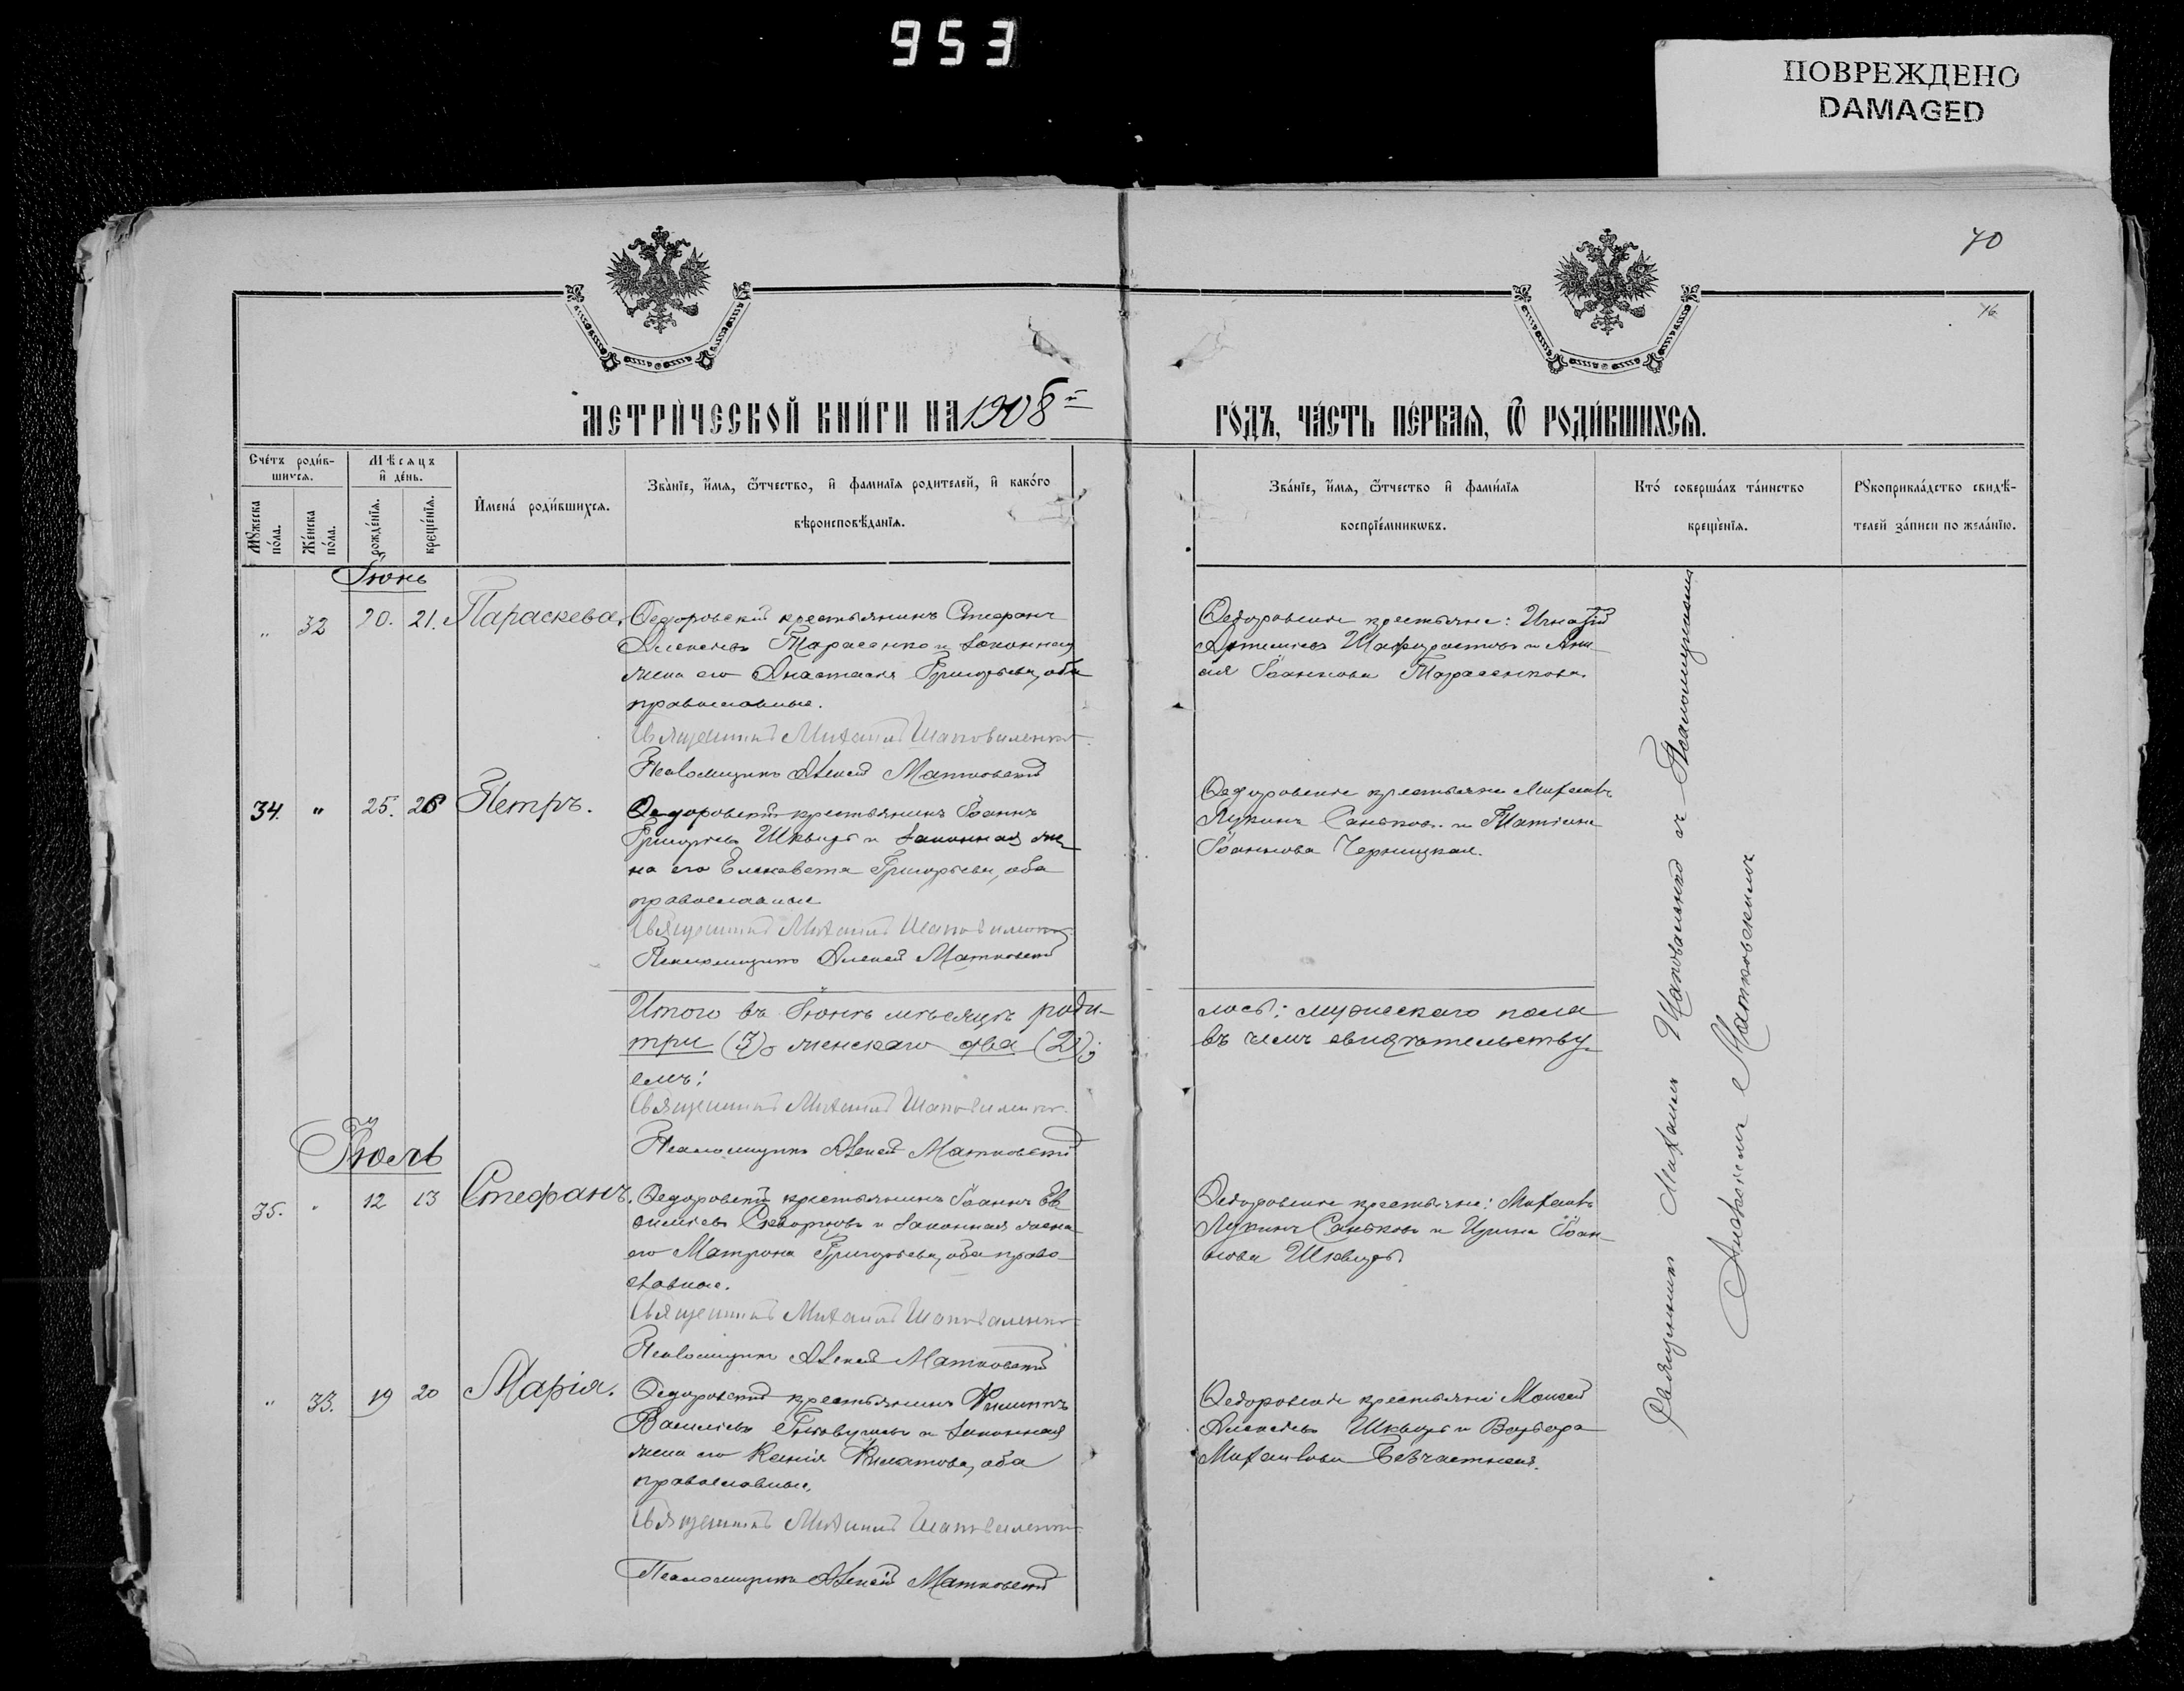 953
ПОВРЕЖДЕНО
DAMAGED
70
76
МЕТРИ́ЧЕСКОЙ КНИ́ГИ НА 1908й
ГО́ДЪ, ЧА́СТЬ ПЕ́РВАЯ, Ѿ РОДИ́ВШИХСЯ.
Сче́тъ роди́в-
шихся.
Мѣсяцъ
и҆ де́нь.
Мꙋжеска по́ла.
Же́нска по́ла.
рожде́нїя.
креще́нїя.
И҆мена̀ роди́вшихся.
Зва́нїе, и҆́мя, ѻ҆́тчество, и҆ фами́лїя родителей, и҆ како́го
вѣроисповѣ́данїя.
Зва́нїе, и҆́мя, ѻ҆́тчество и҆ фами́лїя
воспрїе́мникѡвъ.
Кто́ соверша́лъ та́инство
креще́нїя.
Рꙋкоприкла́дство свидѣ́-
телей за́писи по жела́нїю.
Іюнь
" 32 20. 21. Параскева.
Ѳедоровскій крестьянинъ Стефанъ
Алексѣевъ Тарасенко и законная
жена его Анастасія Григорьева, оба
православные.
Священникъ Михаилъ Шаповаленко
Псаломщикъ Алексѣй Матковскій
Ѳедоровские крестьяне: Игнатій
Артемиевъ и
Іоаннова Тарасенкова.
34. " 25. 26 Петръ.
Ѳедоровскій крестьянинъ Іоаннъ
Григорьевъ Шквирь и законная же-
на его Елисавета Григорьева, оба
православные
Священникъ Михаилъ Шаповаленко
Псаломщикъ Алексѣй Матковскій
Ѳедоровские крестьяне Михаилъ
Лукинъ Саньков и Татіана
Іоаннова Черницкая.
Итого въ Іюнѣ мѣсяцѣ роди-
лось: мужескаго пола
три (3), женскаго два (2);
въ чемъ свидѣтельству-
емъ:
Священникъ Михаилъ Шаповаленко
Псаломщикъ Алексѣй Матковскій
Іюль
35. " 12 13 Стефанъ.
Ѳедоровскій крестьянинъ Іоаннъ Ев
и законная жена
его Матрона Григорьева, оба право-
славные.
Священникъ Михаилъ Шаповаленко
Псаломщикъ Алексѣй Матковскій
Ѳедоровские крестьяне: Михаилъ
Лукинъ Саньков и Ирина Іоан-
нова Шквирь
" 33. 19 20 Марія.
Ѳедоровскій крестьянинъ Филиппъ
Василіевъ и законная
жена его Ксенія Филатова, оба
православные.
Священникъ Михаилъ Шаповаленко
Псаломщикъ Алексѣй Матковскій
Ѳедоровские крестьяне Моисей
Алексѣевъ Шквирь и Варвара
Михаилова Безчастная.
Священникъ Михаилъ Шаповаленко съ Псаломщикомъ
Алексѣемъ Матковскимъ